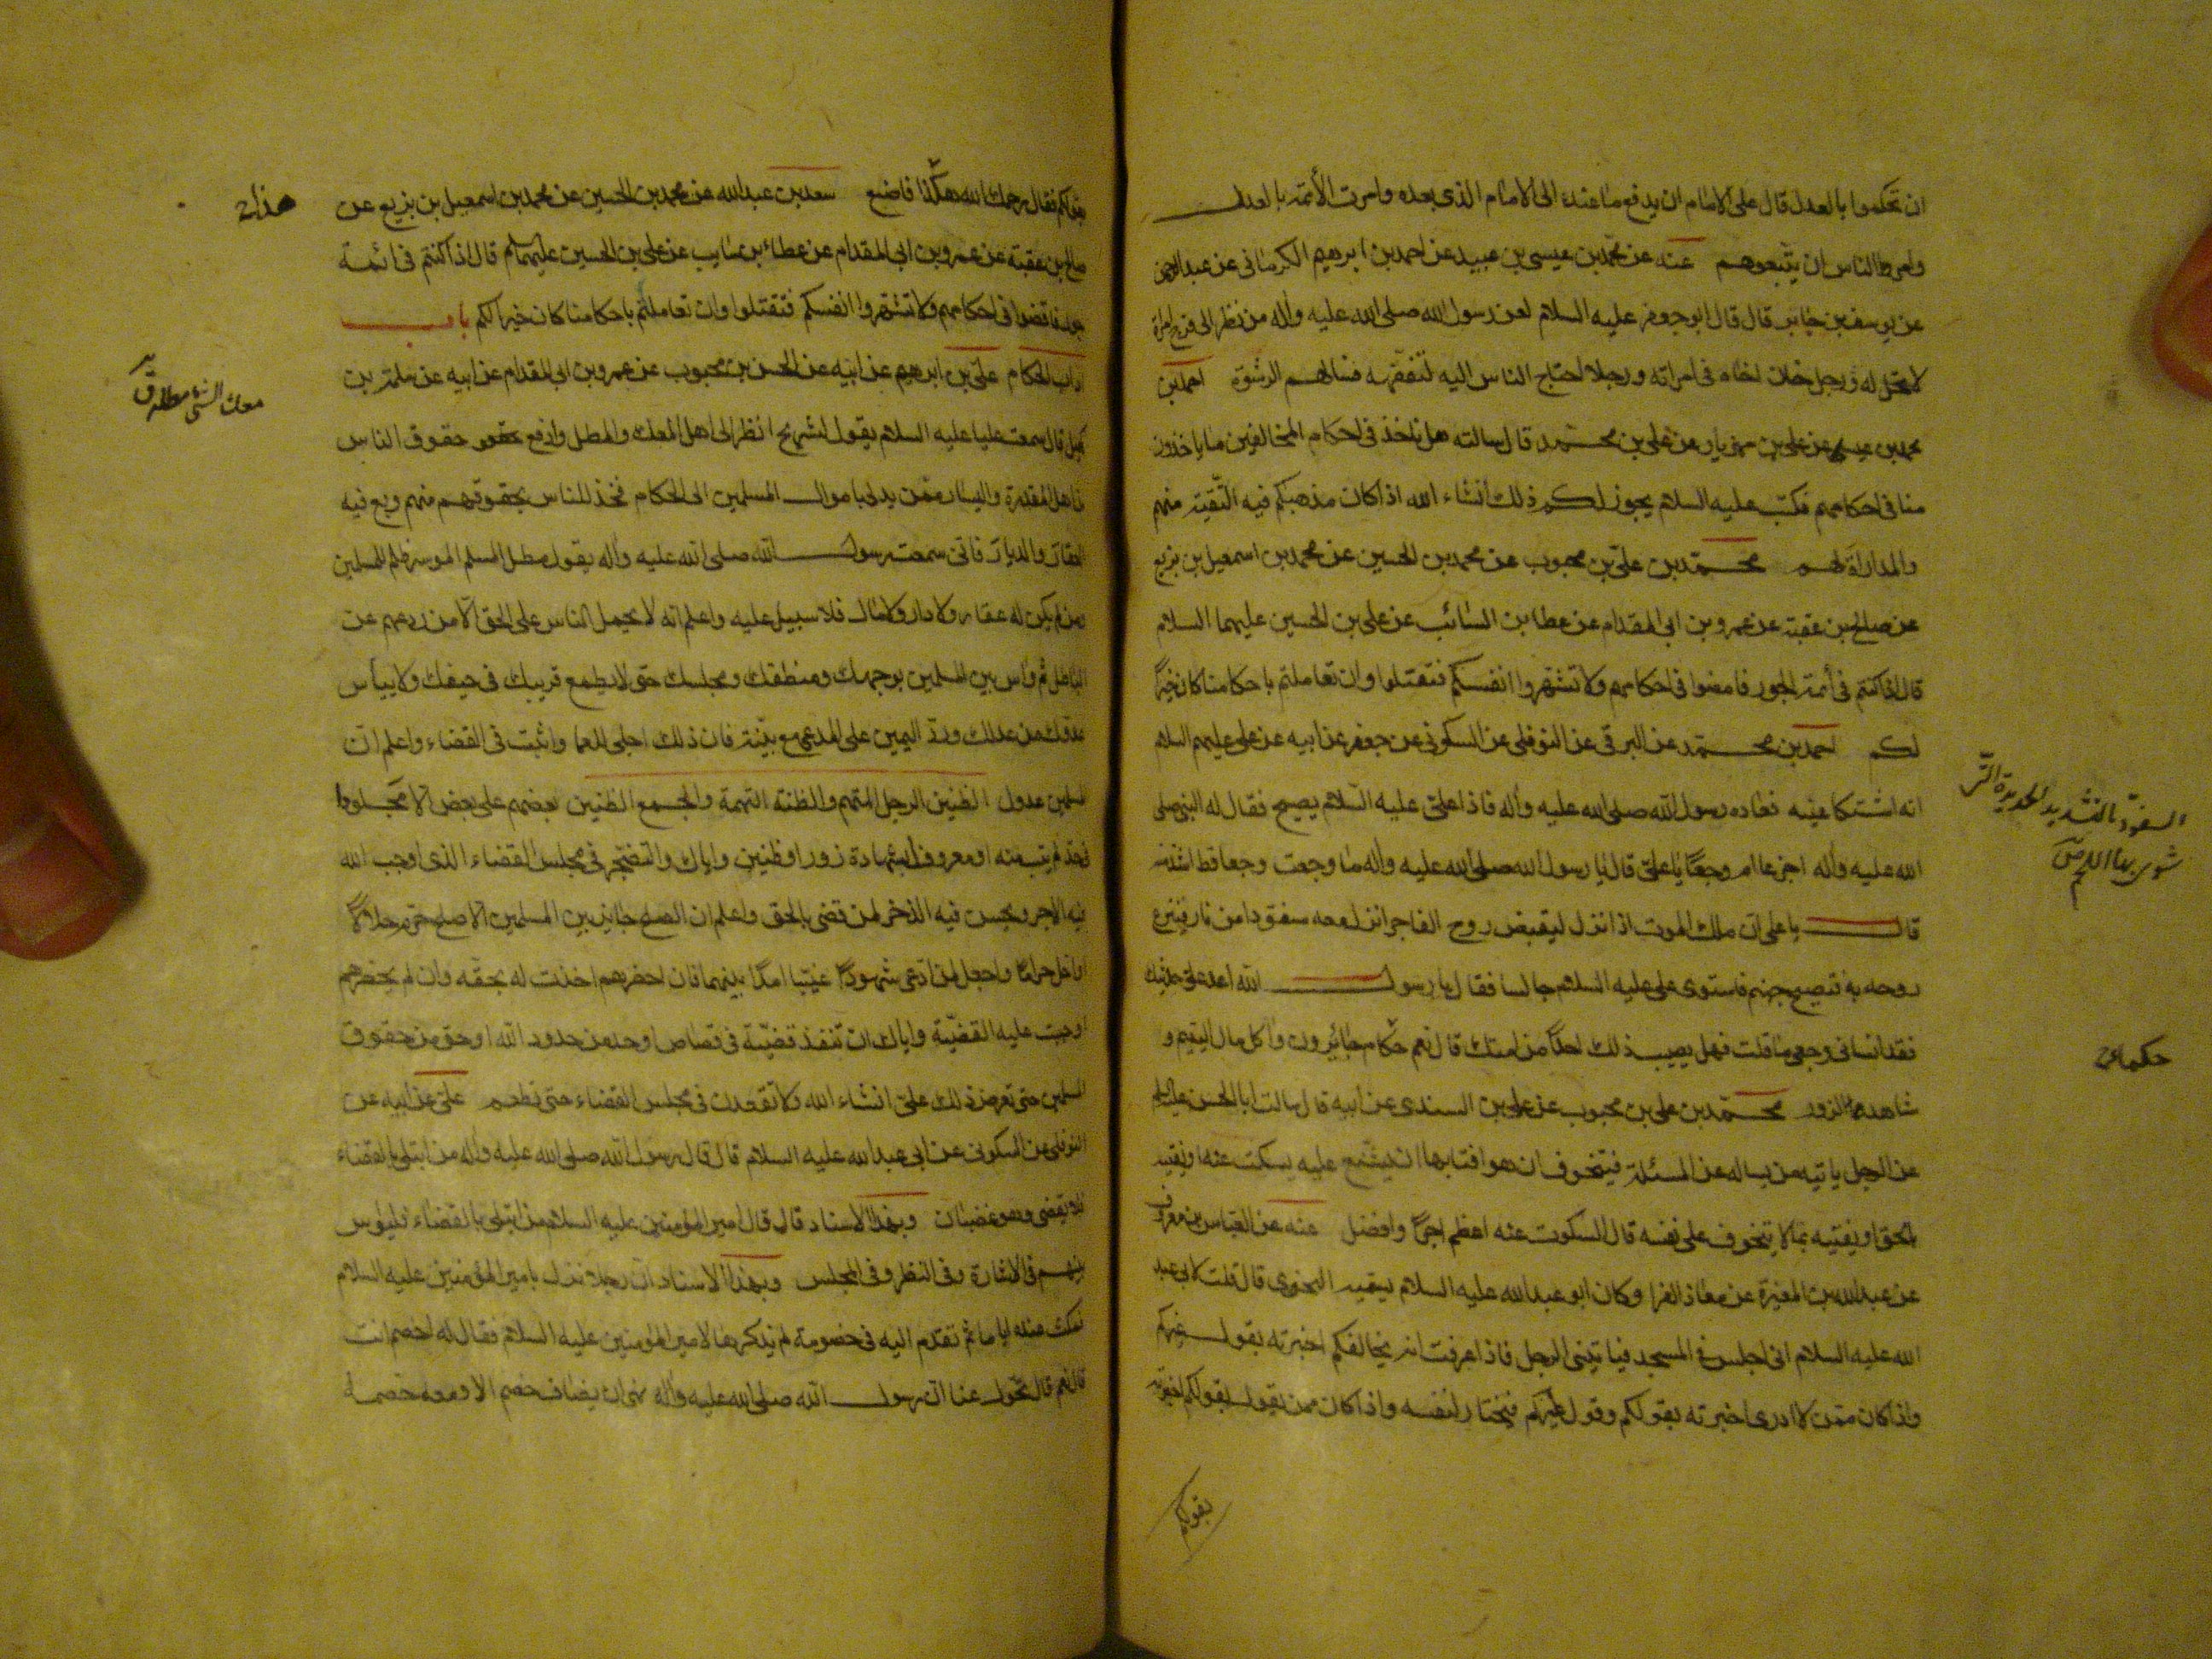 ان تحكموا بالعدل قال على الامام ان يدفع ما عنده الى الامام الذى بعده وامرت الأئمة بالعدل
وامر الناس ان يتبعوهم عنه عن محمد بن عيسى بن عبيد عن احمد بن ابرهيم الكرمانى عن عبد الرحمن
عن يوسف بن جابر قال قال ابو جعفر عليه السلام لعن رسول الله صلى الله عليه واله من نظر الى فرج امراة
لا تحل له ورجل خان اخاه فى امراته ورجلا احتاج الناس اليه لتفقهه فسالهم الرشوة احمد بن
محمد بن عيسى عن على بن مهزيار عن على بن محمد قال سالته هل ناخذ فى احكام المخالفين ما ياخذون
منا فى احكامهم فكتب عليه السلام يجوز لكم ذلك انشاء الله اذا كان مذهبكم فيه التقية منهم
والمداراة لهم محمد بن على بن محبوب عن محمد بن الحسين عن محمد بن اسمعيل بن بزيع
عن صالح بن عقبة عن عمرو بن ابى المقدام عن عطا بن السائب عن على بن الحسين عليهما السلام
قال اذا كنتم فى أئمة الجور فامضوا فى احكامهم ولا تشهروا انفسكم فتقتلوا وان تعاملتم باحكامنا كان خيرًا
لكم احمد بن محمد عن البرقى عن النوفلى عن السكونى عن جعفر عن ابيه عن على عليهم السلام
انه اشتكا عينه فعاده رسول الله صلى الله عليه واله فاذا على عليه السلام يصيح فقال له النبى صلى
الله عليه واله اجزعا ام وجعًا يا على قال يا رسول الله صلى الله عليه واله ما وجعت وجعا قط اشد منه
قال يا على ان ملك الموت اذا نزل ليقبض روح الفاجر انزل معه سفودا من نار فينزع
روحه به فتصيح جهنم فاستوى على عليه السلام جالسا فقال يا رسول الله اعد على حديثك
فقد انسانى وجعى ما قلت فهل يصيب ذلك احدًا من امتك قال نعم حكام جائرون واكل مال اليتيم و
شاهد الزور محمد بن على بن محبوب عن على بن السندى عن ابيه قال سالت ابا الحسن عليه السلام
عن الرجل ياتيه من يساله عن المسئلة فيتخوف ان هو افتا بها ان يشنع عليه يسكت عنه او يفتيه
بالحق او يفتيه بما لا يتخوف على نفسه قال السكوت عنه اعظم اجرًا وافضل عنه عن العباس بن معروف
عن عبد الله بن المغيرة عن معاذ الفرا وكان ابو عبد الله عليه السلام يسميه النحوى قال قلت لابى عبد
الله عليه السلام انى اجلس فى المسجد فياتينى الرجل فاذا عرفت انه يخالفكم اخبرته بقول غيركم
واذا كان ممن لا ادرى اخبرته بقولكم وقول غيركم فيختار لنفسه واذا كان ممن يقول بقولكم اخبرته
بقولكم
السفود بالتشديد الحديدة التى
يشوى بها اللحم ص
حكما
بقولكم فقال رحمك الله هكذا فاصنع سعد بن عبد الله عن محمد بن الحسين عن محمد بن اسمعيل بن بزيع عن
صالح بن عقبة عن عمرو بن ابى المقدام عن عطاء بن سايب عن على بن الحسين عليهما السلام قال اذا كنتم فى ائمة
جور فاقضوا فى احكامهم ولا تشهروا انفسكم فتقتلوا وان تعاملتم باحكامنا كان خيرا لكم باب
اداب الحكام على بن ابرهيم عن ابيه عن الحسن بن محبوب عن عمرو بن ابى المقدام عن ابيه عن سلمة بن
كهيل قال سمعت عليا عليه السلام يقول لشريح انظر الى اهل المعك والمطل وادفع حقوق الناس
من اهل المقدرة واليسار ممن يدلى باموال المسلمين الى الحكام فخذ للناس بحقوقهم منهم وبع فيه
العقار والديار فانى سمعت رسول الله صلى الله عليه واله يقول مطل المسلم الموسر ظلم للمسلمين
ومن لم يكن له عقار ولا دار ولا مال فلا سبيل عليه واعلم انه لا يحمل الناس على الحق الا من ردعهم عن
الباطل ثم واس بين المسلمين بوجهك ومنطقك ومجلسك حتى لا يطمع قريبك فى حيفك ولا ييأس
عدوك من عدلك ورد اليمين على المدعى مع بينة فان ذلك اجلى للعما واثبت فى القضاء واعلم ان
المسلمين عدول الظنين الرجل المتهم والظنة التهمة والجمع الظنين بعضهم على بعض الا مجلودا
فى حد لم يتب منه او معروف بشهادة زور او ظنين واياك والتضجر فى مجلس القضاء الذى اوجب الله
فيه الاجر ويحسن فيه الذخر لمن قضى بالحق واعلم ان الصلح جايز بين المسلمين الا صلح حرم حلالًا
او احل حرامًا واجعل لمن ادعى شهودًا غيّبا امدًا بينهما فان احضرهم اخذت له بحقه وان لم يحضرهم
اوجبت عليه القضية واياك ان تنفذ قضية فى قصاص او حد من حدود الله او حق من حقوق
المسلمين حتى تعرض ذلك على انشاء الله ولا تقعدن فى مجلس القضاء حتى تطعم على عن ابيه عن
النوفلى عن السكونى عن ابى عبد الله عليه السلام قال قال رسول الله صلى الله عليه واله من ابتلى بالقضاء
فلا يقضى وهو غضبان وبهذا الاسناد قال قال امير المؤمنين عليه السلام من ابتلى بالقضاء فليواس
بينهم فى الاشارة وفى النظر وفى المجلس وبهذا الاسناد ان رجلا نزل بامير المؤمنين عليه السلام
فمكث عنده اياما ثم تقدم اليه فى خصومة لم يذكرها لامير المؤمنين عليه السلام فقال له اخصم انت
قال نعم قال تحول عنا ان رسول الله صلى الله عليه واله نهى ان يضاف خصم الا ومعه خصمه
هذا